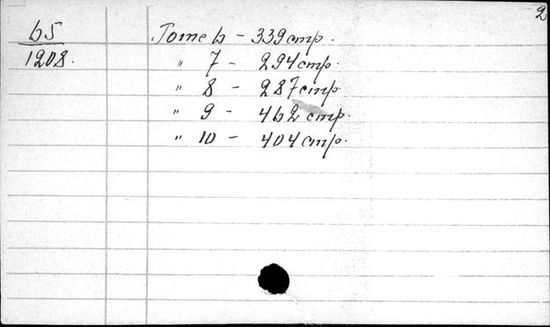 2
65 Tome 6 - 339 стр.
1208. " 7 - 294 стр.
" 8 - 287 стр.
" 9 - 462 стр.
" 10 - 404 стр.